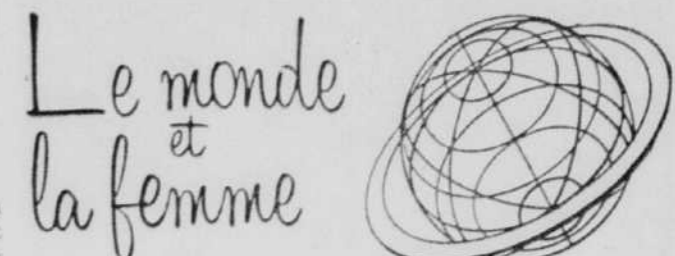 Le monde
et
la femme